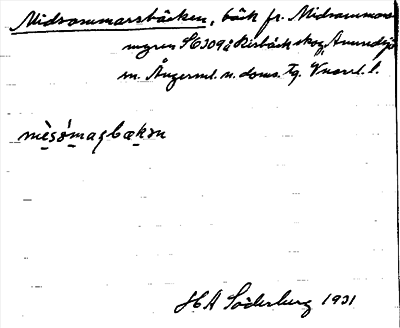 Midsommarsbäcken, bäck fr. Midsommars-
myren SH309 å Risbäck skog, Anundsjö
sn. Ångerml. n. doms. tg. Vnorrl. l.
mèsómaʂbækən
H A Söderberg 1931